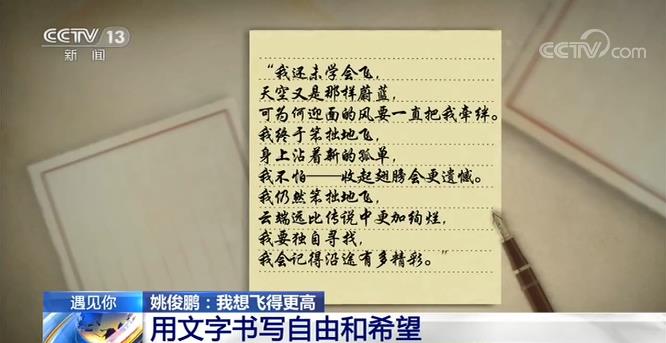 CCTV 13
新闻
CCTV.com
“我还未学会飞，
天空又是那样蔚蓝，
可为何迎面的风要一直把我牵绊。
我终于笨拙地飞，
身上沾着新的孤单，
我不怕——收起翅膀会更遗憾。
我仍然笨拙地飞，
云端远比传说中更加绚烂，
我要独自寻找，
我会记得沿途有多精彩。”
遇见你
姚俊鹏：我想飞得更高
用文字书写自由和希望